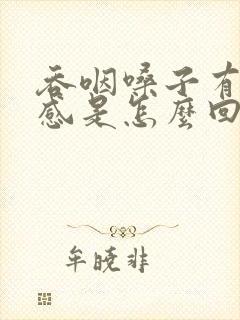 吞咽嗓子有
感是怎麼回
牟晓非